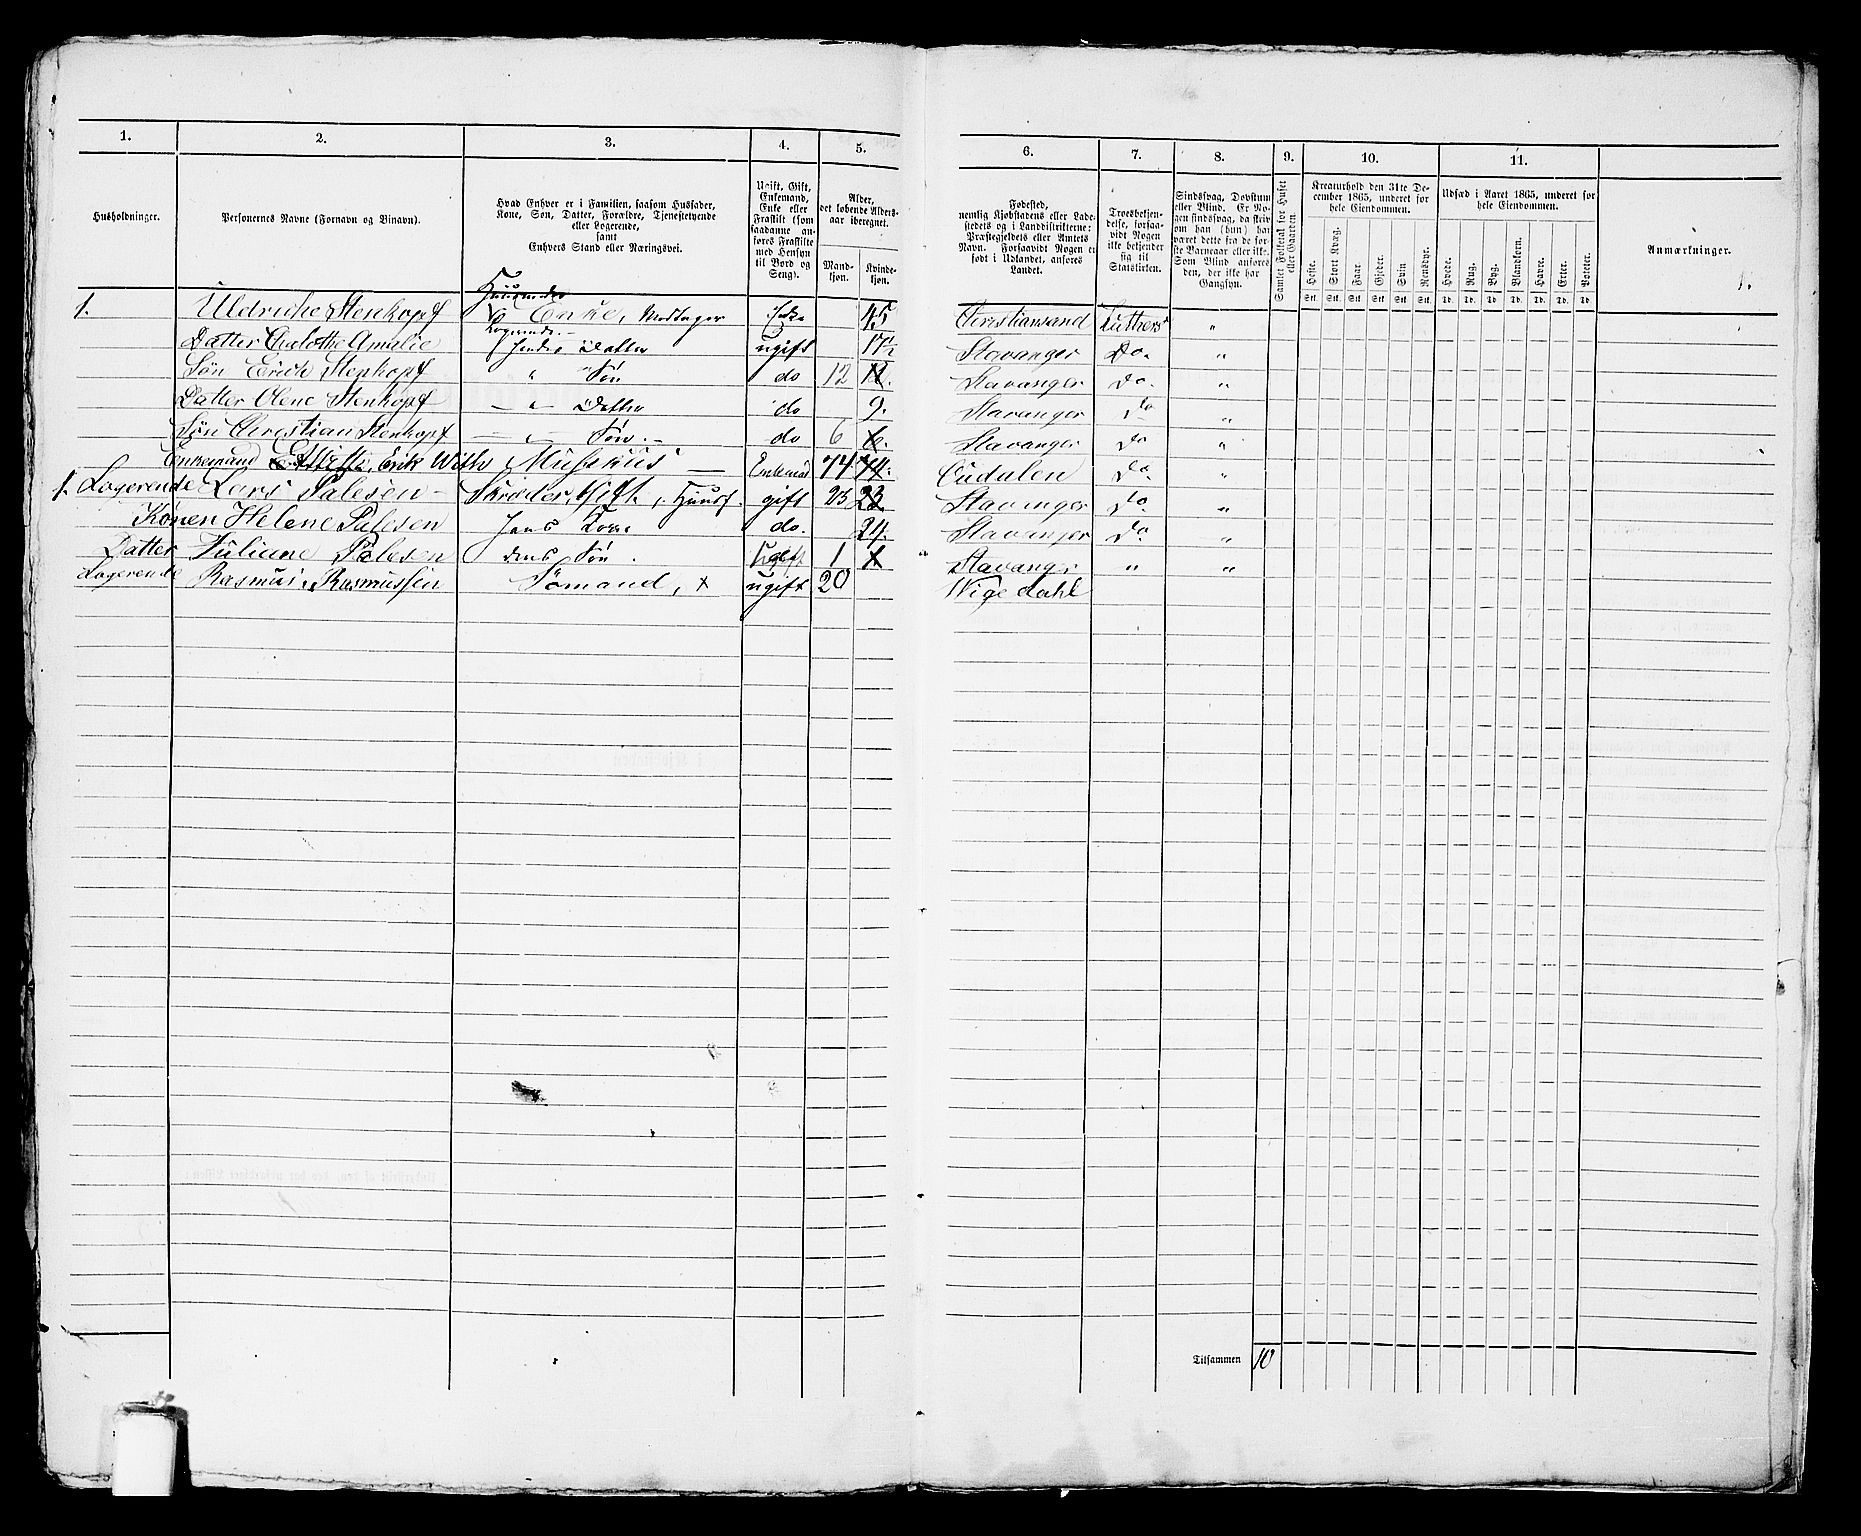 1. 2. 3. 4. 5. 6. 7. 8. 9. 10. 11.
Husholdninger.
Personernes Navne (Fornavn og Vinavn).
Hvad Enhver er i Familien, saasom Husfader, Kone, Søn, Datter, Forældre, Tjenestetyende eller Logerende, samt Enhvers Stand eller Næringsvei.
Ugift, Gift, Enkemand, Enke eller Fraskilt (som saadanne anføres Fraskilte med Hensyn til Bord og Seng).
Alder, det løbende Alders-aar iberegnet.
Mand-kjøn. Kvinde-kjøn.
Fødested, nemlig Kjøbstadens eller Ladestedets og i Landdistrikterne: Præstegjeldets eller Amtets Navn. Forsaavidt Nogen er født i Udlandet, anføres Landet.
Troesbekjendelse, forsaavidt Nogen ikke bekjender sig til Statskirken.
Sindssvag, Døvstum eller Blind. Er Nogen sindssvag, da skrives om han (hun) har været dette fra de første Barneaar eller ikke. Som Blind anføres den, der ikke har Gangsyn.
Samlet Folketal for Huset eller Gaarden.
Kreaturhold den 31te December 1865, underet for hele Eiendommen.
Heste. Stort Kvæg. Faar. Gjeder. Svin. Rensdyr.
Stk. Stk. Stk. Stk. Stk. Stk.
Udsæd i Aaret 1865, underet for hele Eiendommen.
Hvede. Rug. Byg. Blandkorn. Havre. Erter. Poteter.
Td. Td. Td. Td. Td. Td. Td.
Anmærkninger.
1.
1. Uldrikke Stenkopf Enke, Modtager Logerende Enke 45 Christiansand Luthersk "
Datter Charlothe Amalie Datter ugift 17½ Stavanger Do. "
Søn Erich Stenkopf " Søn do 12 12. Stavanger Do. "
Datter Olene Stenkopf " Datter do 9. Stavanger Do "
Søn Christian Stenkopf " Søn. do 6 6. Stavanger Do "
Enkemand Erik With Musikus Enkemand 74 74. Do "
1. Logerende Lars Palesen Skræder, Gift, Huusf. gift 23 23 Stavanger Do "
Konen Helene Palesen Hans Kone do. 24. Stavanger Do. "
Datter Juliane Palesen dens Søn. Ugift 1 1 Stavanger " "
Logerende Rasmus Rasmussen Sömand, x ugift 20 Wigedahl
Tilsammen 10